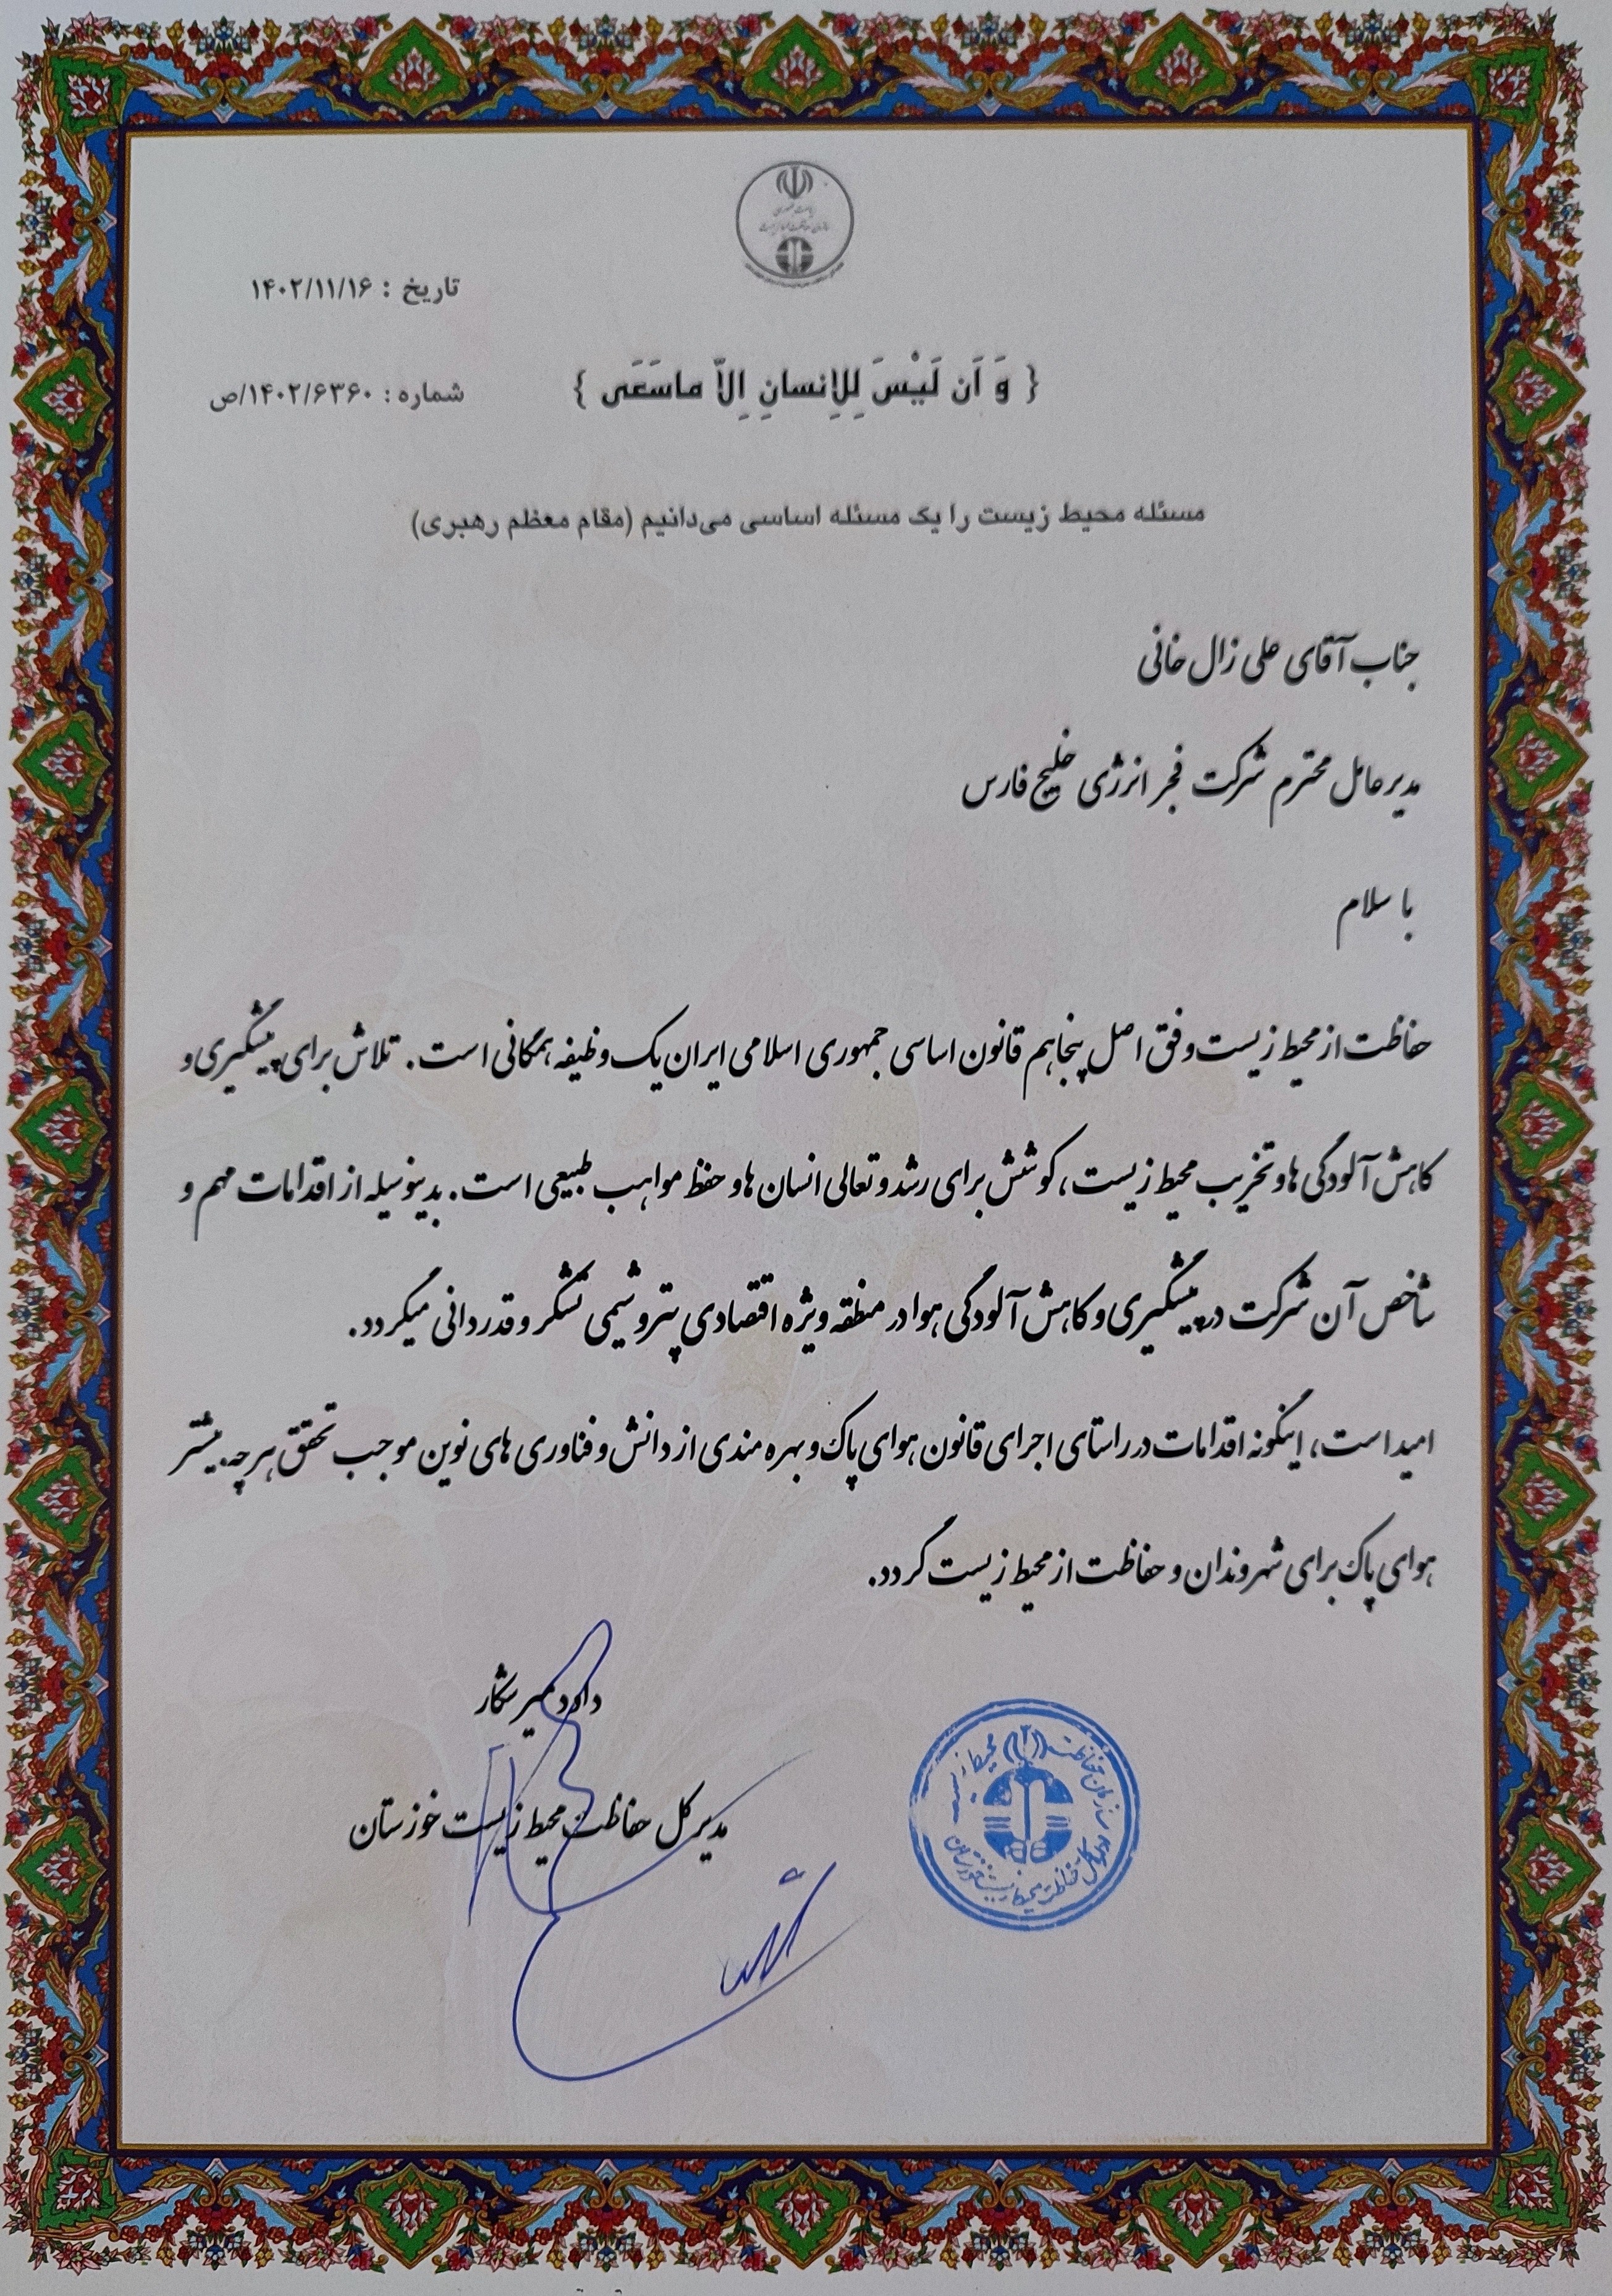 ریاست جمهوری
سازمان حفاظت محیط زیست
تاریخ : ۱۴۰۲/۱۱/۱۶
شماره : ۱۴۰۲/۶۳۶۰/ص
{ وَ اَن لَیْسَ لِلاِنسانِ اِلاّ ماسَعَی }
مسئله محیط زیست را یک مسئله اساسی می‌دانیم (مقام معظم رهبری)
جناب آقای علی زال خانی
مدیرعامل محترم شرکت فجر انرژی خلیج فارس
با سلام
حفاظت از محیط زیست وفق اصل پنجاهم قانون اساسی جمهوری اسلامی ایران یک وظیفه همگانی است. تلاش برای پیشگیری و
کاهش آلودگی ها و تخریب محیط زیست، کوشش برای رشد و تعالی انسان ها و حفظ مواهب طبیعی است. بدینوسیله از اقدامات مهم و
شاخص آن شرکت در پیشگیری و کاهش آلودگی هوا در منطقه ویژه اقتصادی پتروشیمی تشکر و قدردانی میگردد.
امید است، اینگونه اقدامات در راستای اجرای قانون هوای پاک و بهره مندی از دانش و فناوری های نوین موجب تحقق هر چه بیشتر
هوای پاک برای شهروندان و حفاظت از محیط زیست گردد.
داود میرشکار
مدیر کل حفاظت محیط زیست خوزستان
سازمان حفاظت محیط زیست
اداره کل حفاظت محیط زیست خوزستان